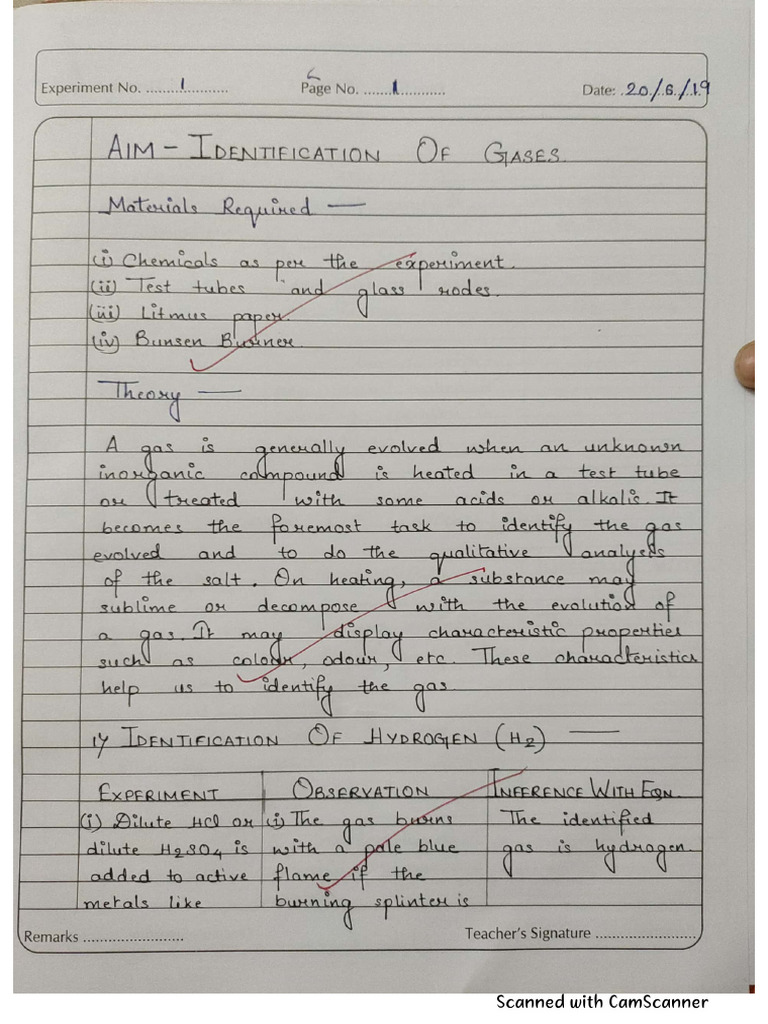 Experiment No. .......1............ Page No. .......1........... Date: .20./.6./.1.9
AIM - IDENTIFICATION OF GASES.
Materials Required —
(i) Chemicals as per the experiment.
(ii) Test tubes and glass rodes.
(iii) Litmus paper.
(iv) Bunsen Burner.
Theory —
A gas is generally evolved when an unknown
inorganic compound is heated in a test tube
or treated with some acids or alkalis. It
becomes the foremost task to identify the gas
evolved and to do the qualitative analysis
of the salt. On heating, a substance may
sublime or decompose with the evolution of
a gas. It may display characteristic properties
such as colour, odour, etc. These characteristics
help us to identify the gas.
1) IDENTIFICATION OF HYDROGEN (H2) —
EXPERIMENT OBSERVATION INFERENCE WITH EQN.
(i) Dilute HCl or (i) The gas burns The identified
dilute H2SO4 is with a pale blue gas is hydrogen.
added to active flame if the
metals like burning splinter is
Remarks ......................... Teacher's Signature .........................
Scanned with CamScanner